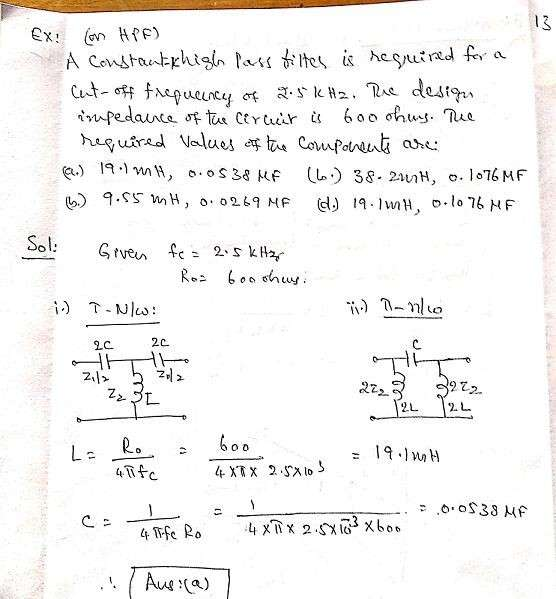 13
Ex: (on HPF)
A constant k high pass filter is required for a
cut-off frequency of 2.5 kHz. The design
impedance of the circuit is 600 ohms. The
required values of the components are:
(a.) 19.1 mH, 0.0538 MF (b.) 38.2 mH, 0.1076 MF
(b.) 9.55 mH, 0.0269 MF (d.) 19.1 mH, 0.1076 MF
Sol: Given fc = 2.5 kHz
R0 = 600 ohms.
i.) T-N/w: ii.) π-n/w
2C 2C C
Z1/2 Z1/2
Z2 L 2Z2 2Z2
2L 2L
L = R0 / 4πfc = 600 / 4×π×2.5×10^3 = 19.1 mH
C = 1 / 4πfc R0 = 1 / 4×π×2.5×10^-3×600 = 0.0538 MF
∴ Ans: (a)